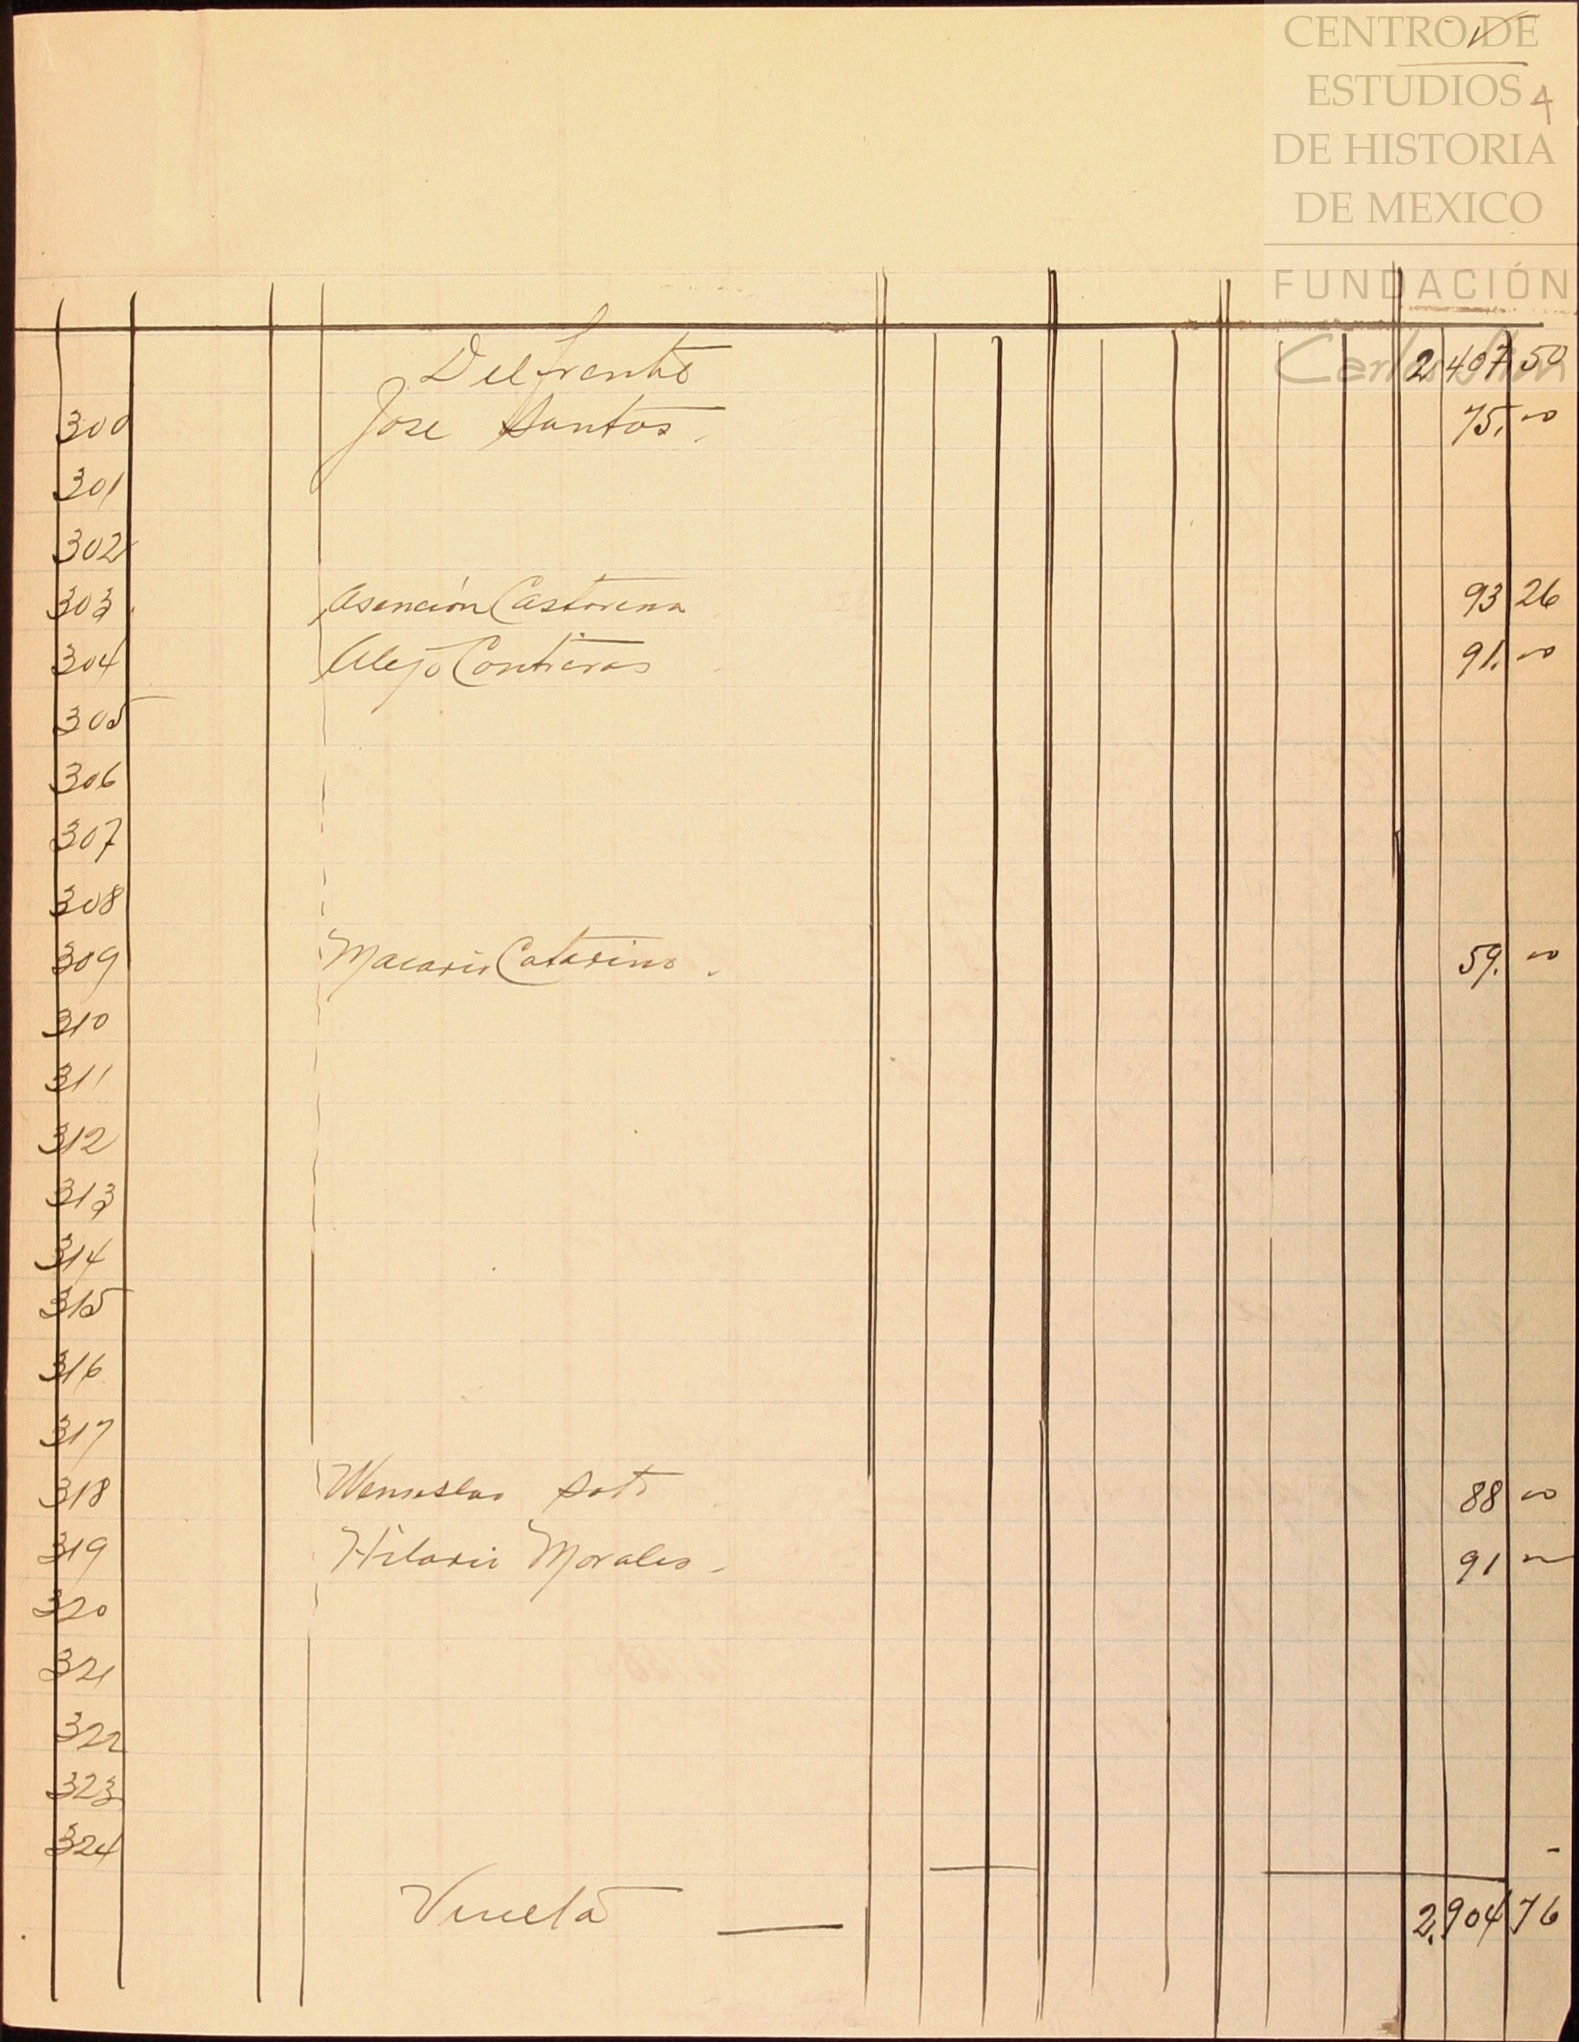 CENTRO DE
ESTUDIOS
4
DE HISTORIA
DE MEXICO
FUNDACIÓN
Carlos Slim
Del frente 2,407 50
300 Jose Santos. 75.00
301
302
303 Asención Castorena 93 26
304 Alejo Contreras 91.00
305
306
307
308
309 Macario Catarino. 59.00
310
311
312
313
314
315
316
317
318 Wenseslao Soto 88 00
319 Hilario Morales 91 00
320
321
322
323
324
Vuelta 2,904 76